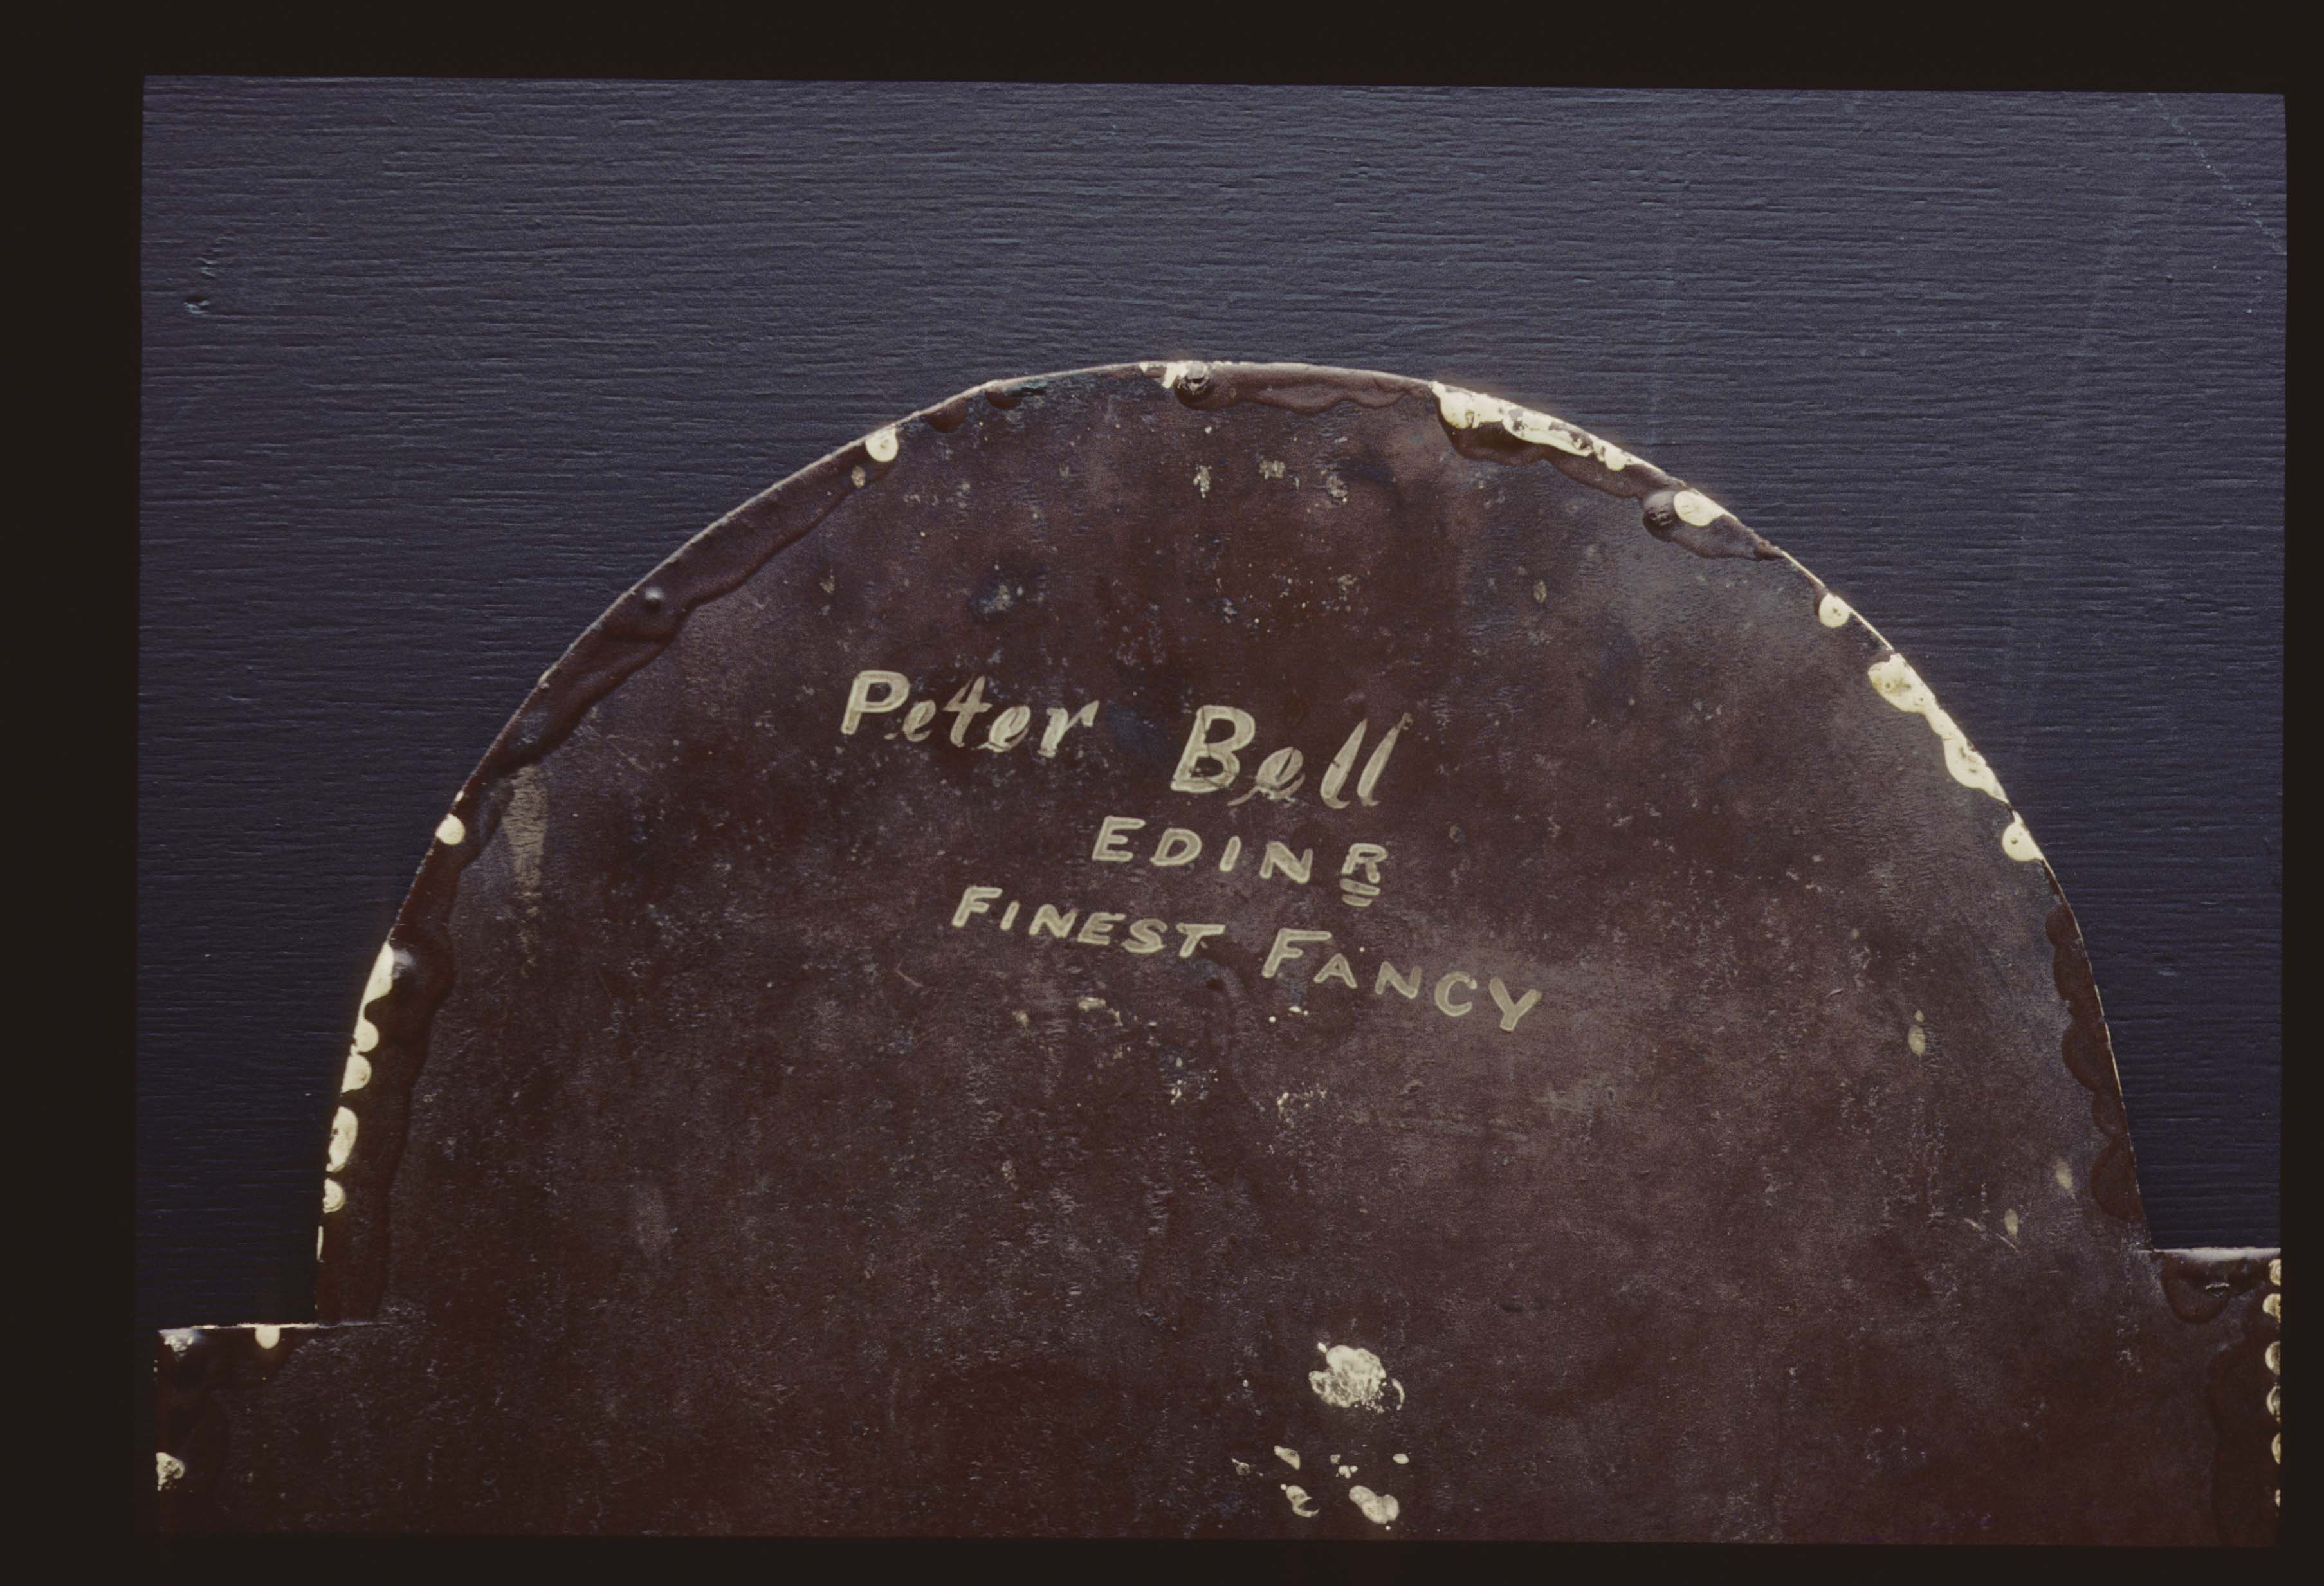 Peter Bell
EDINR
FINEST FANCY